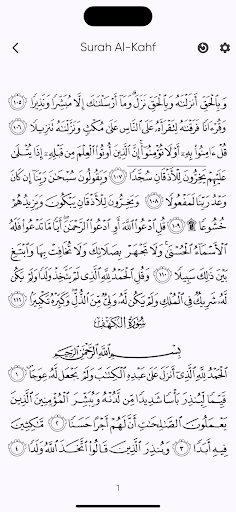 Surah Al-Kahf
وَبِالْحَقِّ أَنزَلْنَٰهُ وَبِالْحَقِّ نَزَلَ وَمَا أَرْسَلْنَٰكَ إِلَّا مُبَشِّرًا وَنَذِيرًا ١٠٥
وَقُرْءَانًا فَرَقْنَٰهُ لِتَقْرَأَهُ عَلَى النَّاسِ عَلَىٰ مُكْثٍ وَنَزَّلْنَٰهُ تَنزِيلًا ١٠٦
قُلْ ءَامِنُوا بِهِ أَوْ لَا تُؤْمِنُوا إِنَّ الَّذِينَ أُوتُوا الْعِلْمَ مِن قَبْلِهِ إِذَا يُتْلَىٰ
عَلَيْهِمْ يَخِرُّونَ لِلْأَذْقَانِ سُجَّدًا ١٠٧ وَيَقُولُونَ سُبْحَٰنَ رَبِّنَا إِن كَانَ
وَعْدُ رَبِّنَا لَمَفْعُولًا ١٠٨ وَيَخِرُّونَ لِلْأَذْقَانِ يَبْكُونَ وَيَزِيدُهُمْ
خُشُوعًا ۩ ١٠٩ قُلِ ادْعُوا اللَّهَ أَوِ ادْعُوا الرَّحْمَٰنَ أَيًّا مَّا تَدْعُوا فَلَهُ
الْأَسْمَاءُ الْحُسْنَىٰ وَلَا تَجْهَرْ بِصَلَاتِكَ وَلَا تُخَافِتْ بِهَا وَابْتَغِ
بَيْنَ ذَٰلِكَ سَبِيلًا ١١٠ وَقُلِ الْحَمْدُ لِلَّهِ الَّذِي لَمْ يَتَّخِذْ وَلَدًا وَلَمْ يَكُن
لَّهُ شَرِيكٌ فِي الْمُلْكِ وَلَمْ يَكُن لَّهُ وَلِيٌّ مِّنَ الذُّلِّ وَكَبِّرْهُ تَكْبِيرًا ١١١
سُورَةُ الْكَهْفِ
بِسْمِ اللَّهِ الرَّحْمَٰنِ الرَّحِيمِ
الْحَمْدُ لِلَّهِ الَّذِي أَنزَلَ عَلَىٰ عَبْدِهِ الْكِتَٰبَ وَلَمْ يَجْعَل لَّهُ عِوَجًا ١
قَيِّمًا لِّيُنذِرَ بَأْسًا شَدِيدًا مِّن لَّدُنْهُ وَيُبَشِّرَ الْمُؤْمِنِينَ الَّذِينَ
يَعْمَلُونَ الصَّٰلِحَٰتِ أَنَّ لَهُمْ أَجْرًا حَسَنًا ٢ مَّٰكِثِينَ
فِيهِ أَبَدًا ٣ وَيُنذِرَ الَّذِينَ قَالُوا اتَّخَذَ اللَّهُ وَلَدًا ٤
1